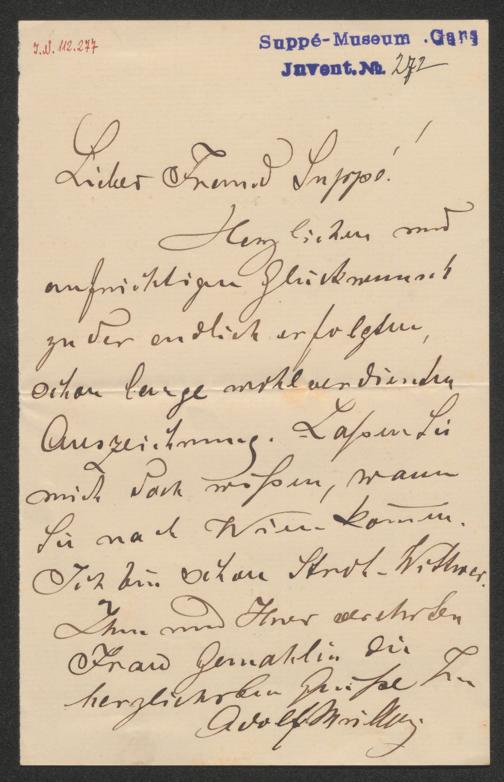 I.N. 112.277
Suppé-Museum Gars
Invent. No. 272
Lieber Freund Suppé!
Herzlichen und
aufrichtigen Glückwunsch
zu der endlich erfolgten,
schon lange wohlverdienten
Auszeichnung. Laßen Sie
mich doch wißen, wann
Sie nach Wien komen.
Ich bin schon Stroh-Wittwer.
Ihnen und Ihrer verehrten
Frau Gemahlin die
herzlichsten Grüße Ihr
Adolf